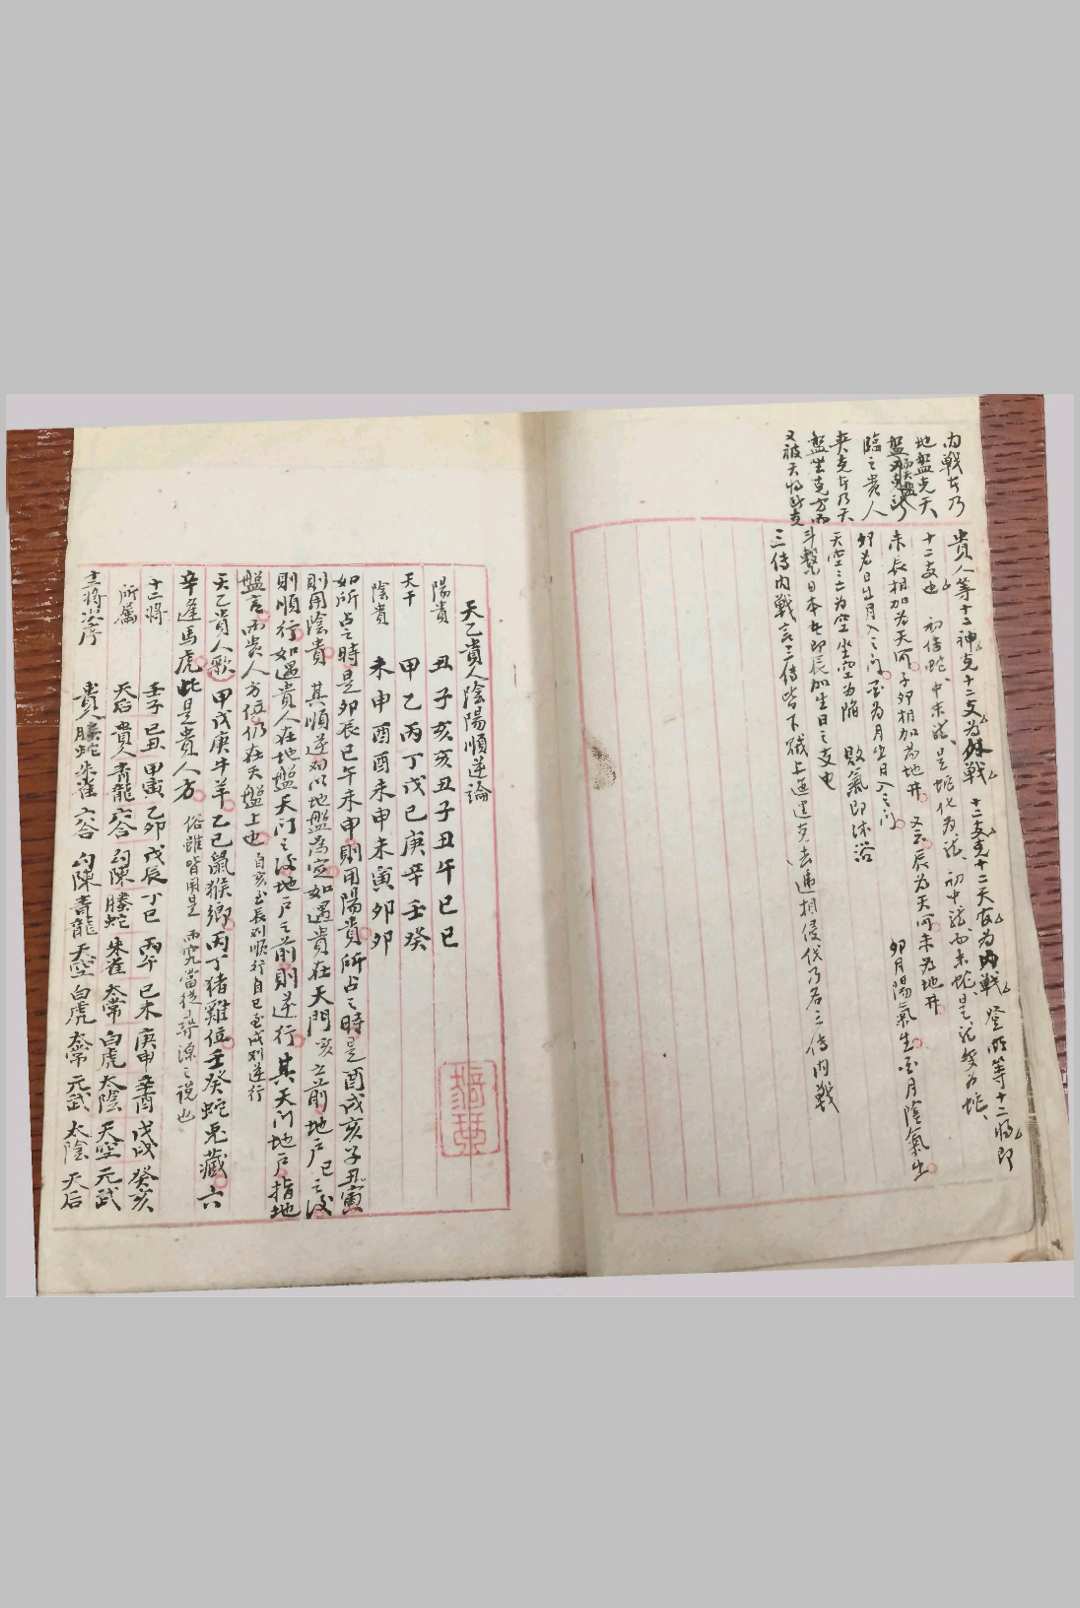 內戰者乃
地盤克天
臨之貴人
夾克者乃天
盤坐克方而
又被天將所克
貴人等十二神克十二支為外戰 十二支克十二天官為內戰 登明等十二將即
十二支也 初傳蛇、中末龍、是蛇化為龍、初中龍而末蛇、是龍變為蛇、
未辰相加為天網 子卯相加為地井 又云辰為天網未為地井
卯為日出月入之門 酉為月出日入之門 卯月陽氣生 酉月陰氣生
天空之上為空 坐空為陷 敗氣即沐浴
斗繫日本者即辰加生日之支也
三傳內戰言三傳皆下賊上 克去遞相侵伐乃名三傳內戰
天乙貴人陰陽順逆論
陽貴 丑子亥亥丑子丑午巳巳
天干 甲乙丙丁戊己庚辛壬癸
陰貴 未申酉酉未申未寅卯卯
如所占之時是卯辰巳午未申則用陽貴所占之時是酉戌亥子丑寅
則用陰貴 其順逆以地盤為定如遇貴在天門亥之前地戶巳之後
則順行如遇貴人在地盤天門之後地戶之前則逆行其天门地戶指地
盤言而貴人方位仍在天盤上也 自亥至辰列順行自巳至戌列逆行
天乙貴人歌 甲戊庚牛羊乙己鼠猴鄉丙丁猪雞位壬癸蛇兎藏六
辛逢馬虎此是貴人方 俗雖皆用是 而究當從 源之說也
十二將 壬子己丑甲寅乙卯戊辰丁巳丙午己未庚申辛酉戊戌癸亥
所屬 天后貴人青龍六合勾陳螣蛇朱雀太常白虎太陰天空元武
十二將次序 貴人螣蛇朱雀六合勾陳青龍天空白虎太常元武太陰天后